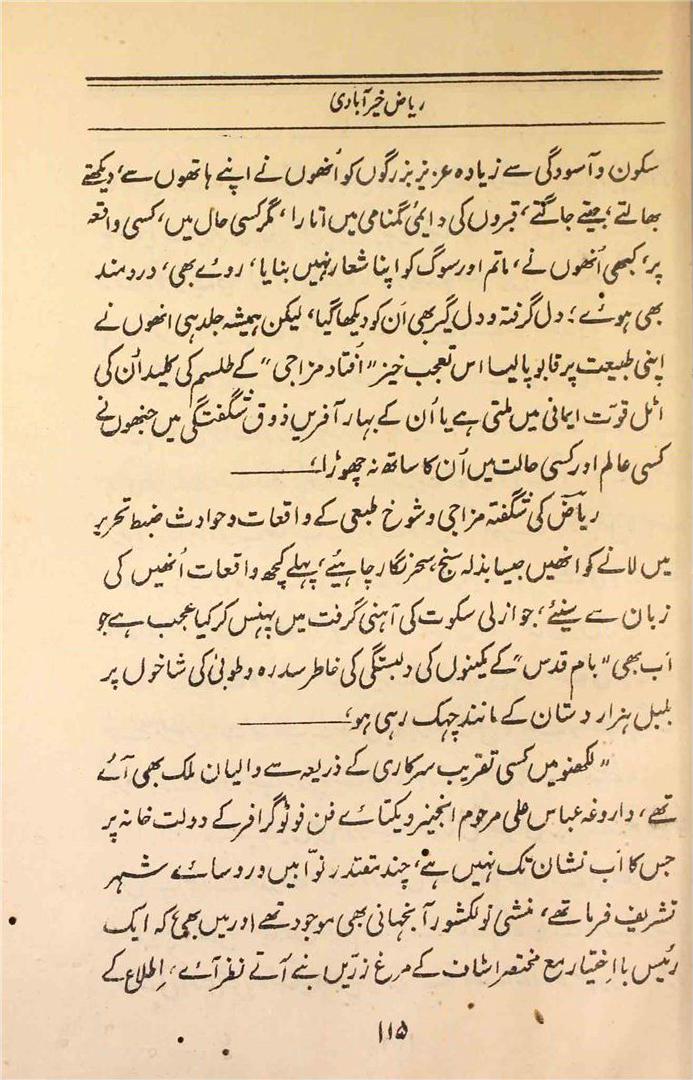 ریاض خیرآبادی
سکون و آسودگی سے زیادہ عزیز بزرگوں کو اُنھوں نے اپنے ہاتھوں سے، دیکھتے
بھالتے، جیتے جاگتے، قبروں کی دایمی گمنامی میں اتارا، مگر کسی حال میں، کسی واقعہ
پر، کبھی اُنھوں نے، ماتم اور سوگ کو اپنا شعار نہیں بنایا، روۓ بھی، دردمند
بھی ہوۓ؛ دل گرفتہ و دل گیر بھی اُن کو دیکھا گیا، لیکن ہمیشہ جلد ہی انھوں نے
اپنی طبیعت پر قابو پا لیا اس تعجب خیز "اُفتاد مزاجی" کے طلسم کی کلید اُن کی
اٹل قوّت ایمانی میں ملتی ہے یا اُن کے بہار آفریں ذوق شگفتگی میں جنھوں نے
کسی عالم اور کسی حالت میں اُن کا ساتھ نہ چھوڑا،
ریاضؔ کی شگفتہ مزاجی و شوخ طبعی کے واقعات و حوادث ضبط تحریر
میں لانے کو انھیں جیسا بذلہ سنج، سحر نگار چاہیۓ، پہلے کچھ واقعات اُنھیں کی
زبان سے سنیۓ، جو ازلی سکوت کی آہنی گرفت میں پھنس کر کیا عجب ہے جو
اَب بھی "بام قدس" کے مکینوں کی دلبستگی کی خاطر سدرہ و طوبیٰ کی شاخوں پر
بلبل ہزار داستان کے مانند چہک رہی ہو،
"لکھنؤ میں کسی تقریب سرکاری کے ذریعہ سے والیان ملک بھی آۓ
تھے، داروغہ عباس علی مرحوم انجنیر و یکتاۓ فن فوٹو گرافر کے دولت خانہ پر
جس کا اَب نشان تک نہیں ہے، چند مقتدر نوّابین و روساۓ شہر
تشریف فرما تھے، منشی نولکشور آنجہانی بھی موجود تھے اور میں بھی کہ ایک
رئیس بااِختیار مع مختصر اسٹاف کے مرغ زرّیں بنے آتے نظر آۓ، اِطلاع کے
۱۱۵